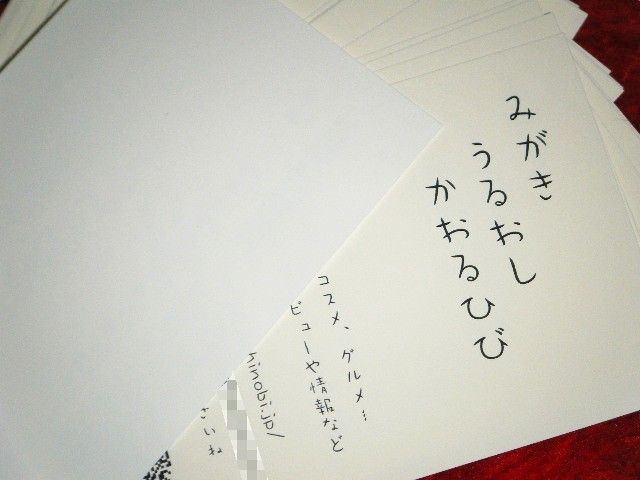 みがき
うるおし
かおるひび
コスメ、グルメ…
ビューや情報など
ninobi.jp/
さいね